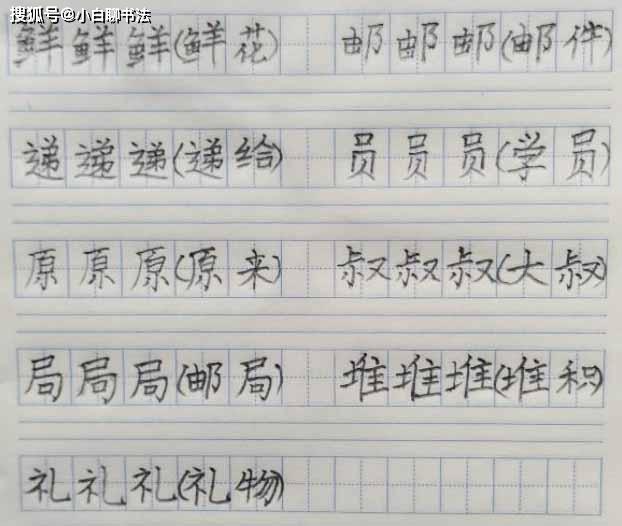 搜狐号@小白聊书法
鲜鲜鲜(鲜花) 邮邮邮(邮件)
递递递(递给) 员员员(学员)
原原原(原来) 叔叔叔(大叔)
局局局(邮局) 堆堆堆(堆积)
礼礼礼(礼物)